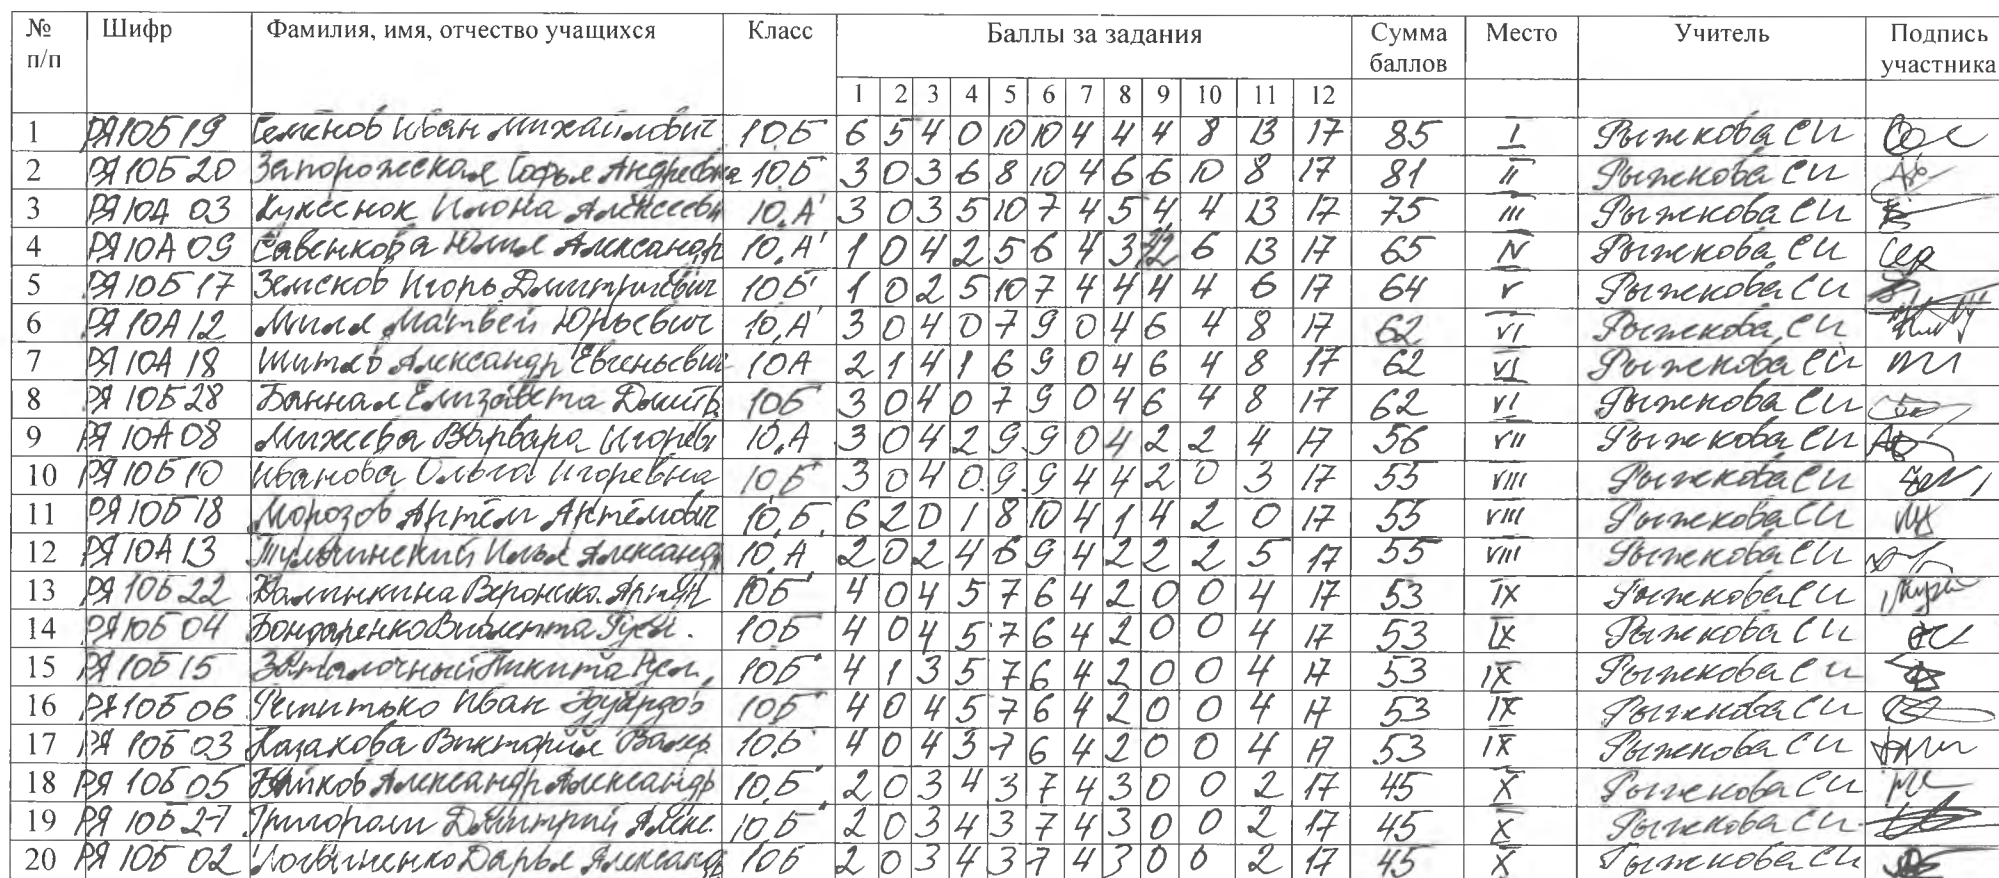 № п/п Шифр Фамилия, имя, отчество учащихся Класс Баллы за задания Сумма баллов Место Учитель Подпись участника
1 2 3 4 5 6 7 8 9 10 11 12
1 РЯ10Б19 Семёнов Иван Михайлович 10.Б 6 5 4 0 10 10 4 4 4 8 13 17 85 I Рыжкова СИ
2 РЯ10Б 20 Запорожская Софья Андреевна 10.Б 3 0 3 6 8 10 4 6 6 10 8 17 81 II Рыжкова СИ
3 РЯ10А 03 Куксенок Илона Алексеевн 10.А 3 0 3 5 10 7 4 5 4 4 13 17 75 III Рыжкова СИ
4 РЯ10А 09 Савенкова Юлия Александр 10.А 1 0 4 2 5 6 4 3 6 13 17 65 IV Рыжкова СИ
5 РЯ10Б 17 Земсков Игорь Дмитриевич 10Б 1 0 2 5 10 7 4 4 4 4 6 17 64 V Рыжкова СИ
6 РЯ 10А 12 Милл Матвей Юрьевич 10.А 3 0 4 0 7 9 0 4 6 4 8 17 62 VI Рыжкова СИ
7 РЯ 10А 18 Александр Евгеньевич 10А 2 1 4 1 6 9 0 4 6 4 8 17 62 VI Рыжкова СИ
8 РЯ 10Б 28 Банная Елизавета Дмитр 10Б 3 0 4 0 7 9 0 4 6 4 8 17 62 VI Рыжкова СИ
9 РЯ 10А 08 Михеева Варвара Игоревн 10.А 3 0 4 2 9 9 0 4 2 2 4 17 56 VII Рыжкова СИ
10 РЯ 10Б 10 Иванова Ольга Игоревна 10Б 3 0 4 0 9 9 4 4 2 0 3 17 55 VIII Рыжкова СИ
11 РЯ 10Б 18 Морозов Артём Артёмович 10.Б. 6 2 0 1 8 10 4 1 4 2 0 17 55 VIII Рыжкова СИ
12 РЯ 10А 13 Тульчинский Илья Александ 10.А 2 0 2 4 6 9 4 2 2 2 5 17 55 VIII Рыжкова СИ
13 РЯ 10Б 22 Калинкина Вероника 10Б 4 0 4 5 7 6 4 2 0 0 4 17 53 IX Рыжкова СИ
14 РЯ10Б 04 Бондаренко Виолетта 10Б 4 0 4 5 7 6 4 2 0 0 4 17 53 IX Рыжкова СИ
15 РЯ 10Б 15 Никита 10Б 4 1 3 5 7 6 4 2 0 0 4 17 53 IX Рыжкова СИ
16 РЯ10Б 06 Иван Эдуардов 10Б 4 0 4 5 7 6 4 2 0 0 4 17 53 IX Рыжкова СИ
17 РЯ 10Б 03 Казакова Виктория Валер 10.Б 4 0 4 3 7 6 4 2 0 0 4 17 53 IX Рыжкова СИ
18 РЯ 10Б 05 Александр Александр 10.Б 2 0 3 4 3 7 4 3 0 0 2 17 45 X Рыжкова СИ
19 РЯ 10Б 27 Дмитрий Алекс. 10.Б 2 0 3 4 3 7 4 3 0 0 2 17 45 X Рыжкова СИ
20 РЯ 10Б 02 Логвиненко Дарья Александ 10Б 2 0 3 4 3 7 4 3 0 0 2 17 45 X Рыжкова СИ